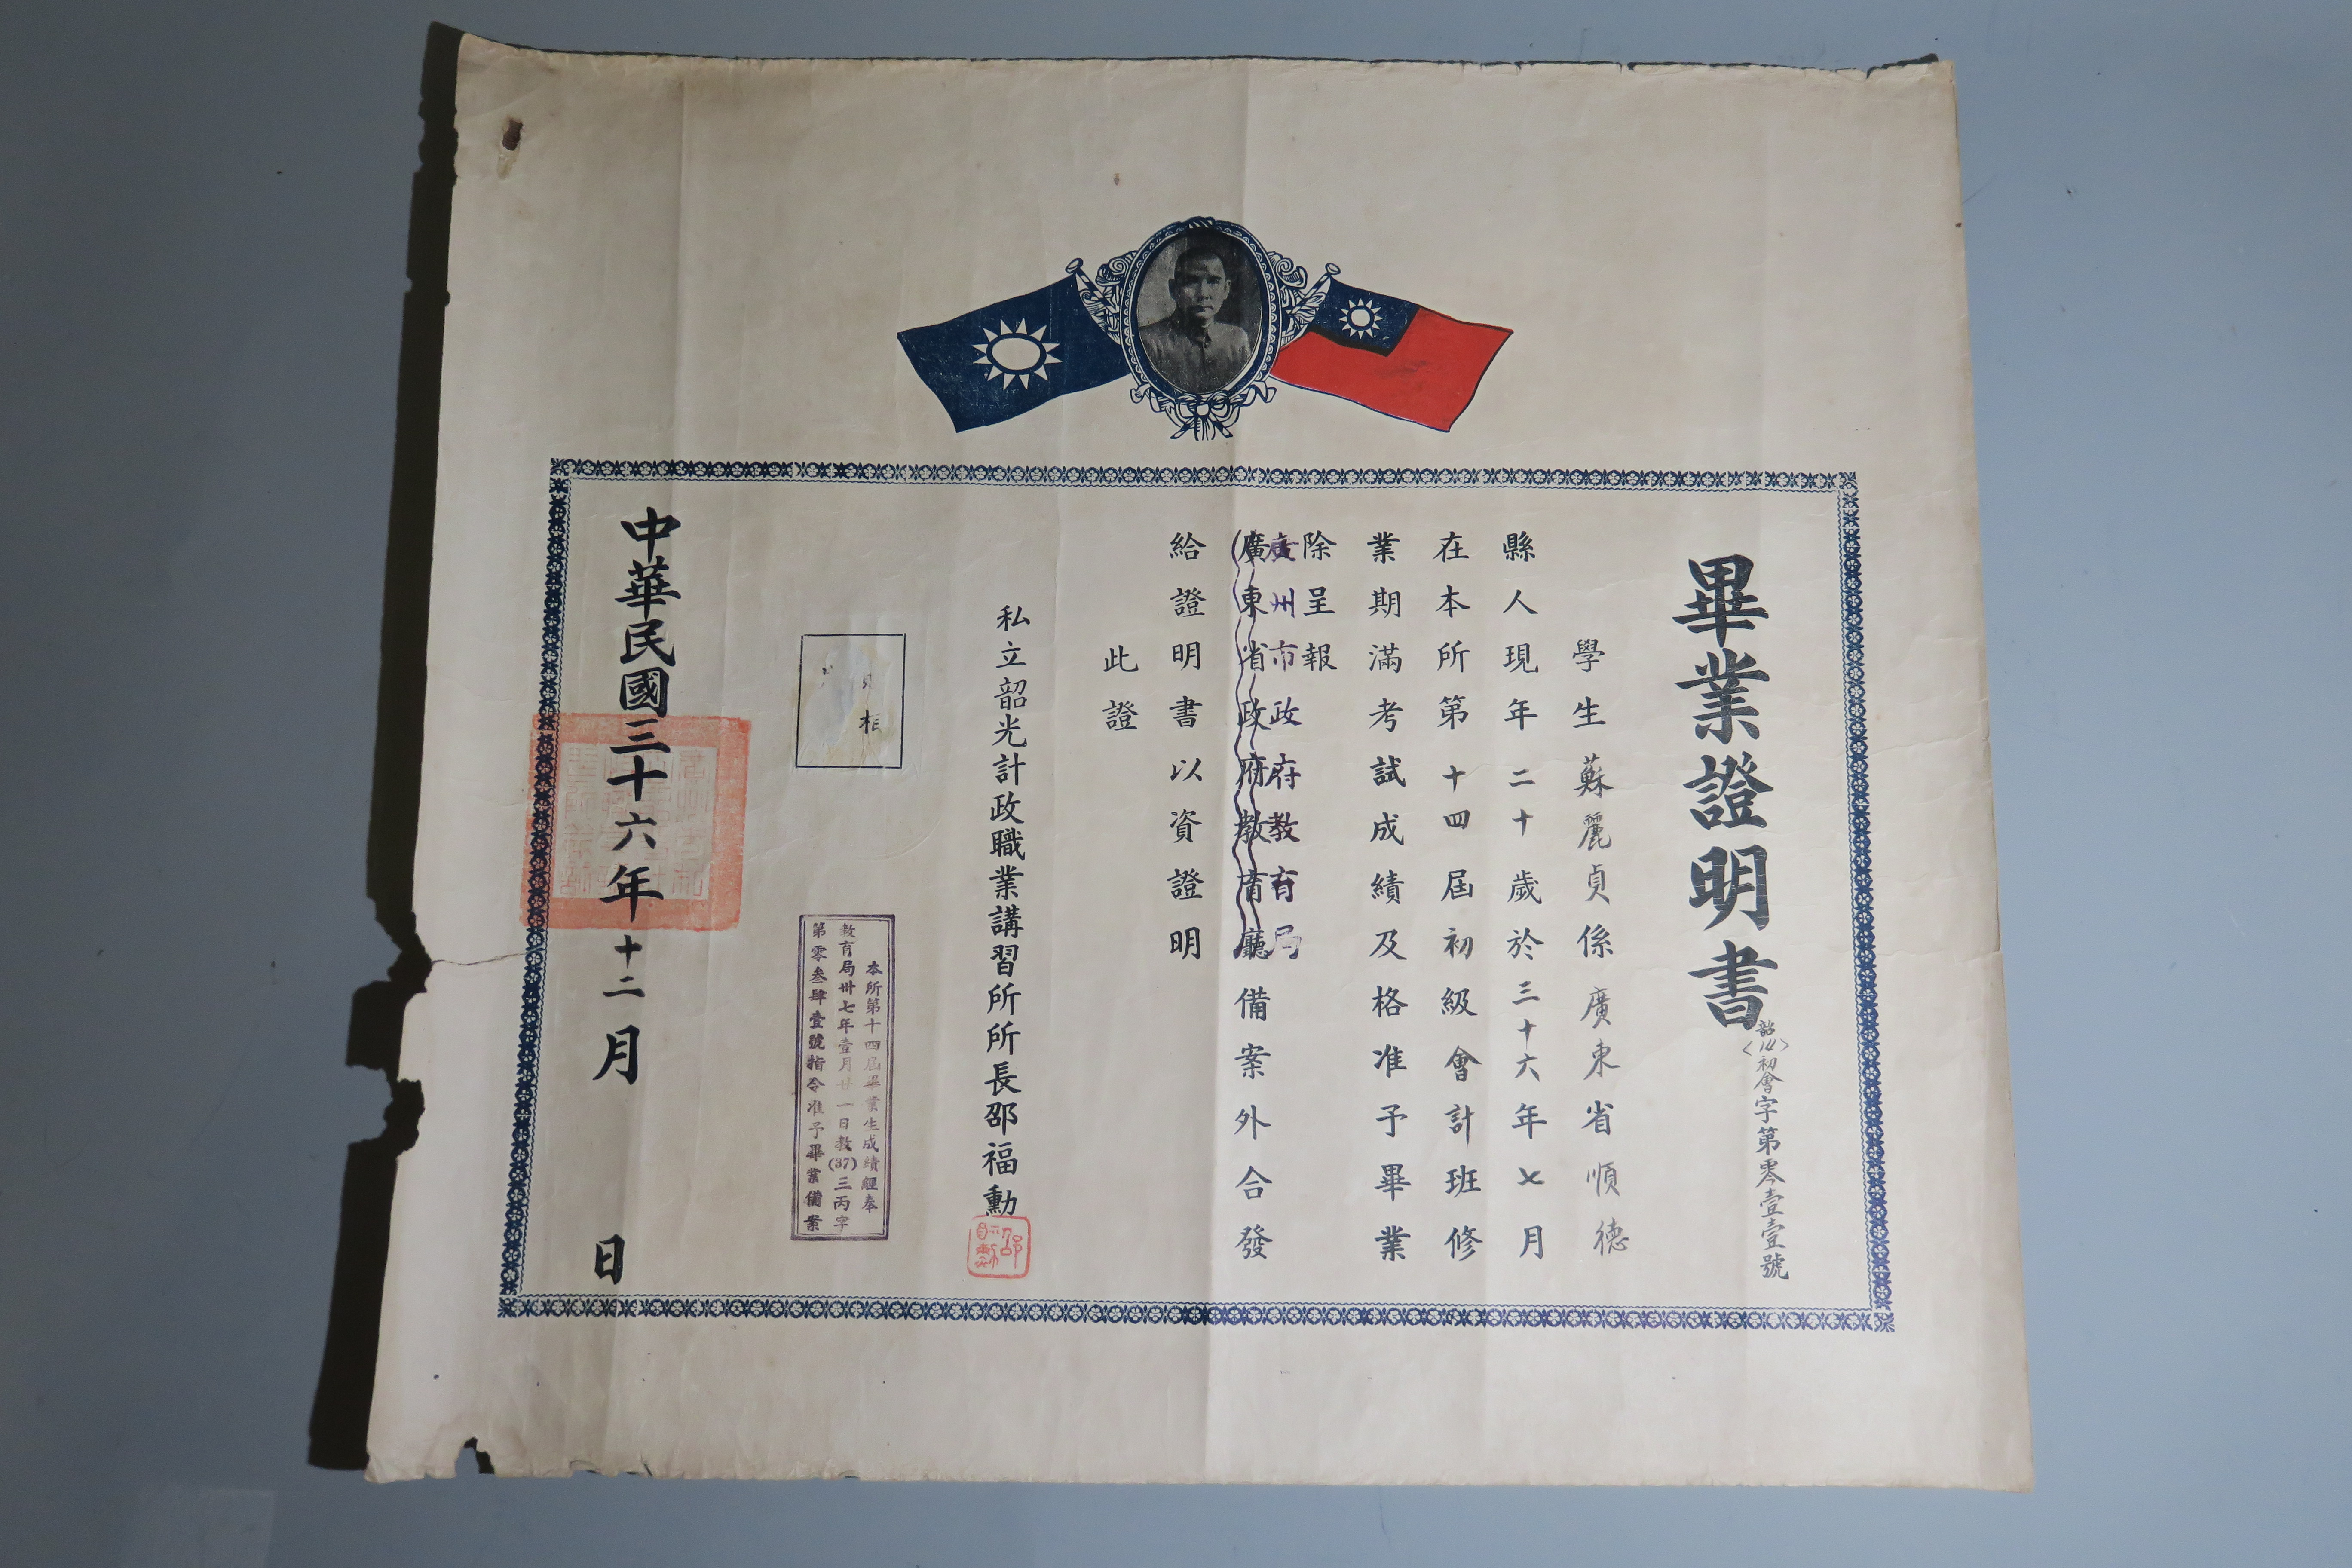 畢業證明書
初會字第零壹壹號
學生蘇麗貞係廣東省順德
縣人現年二十歲於三十六年七月
在本所第十四屆初級會計班修
業期滿考試成績及格准予畢業
除呈報
廣州市政府教育局
廣東省政府教育廳備案外合發
給證明書以資證明
此證
私立韶光計政職業講習所所長邵福勳
相
本所第十四屆畢業生成績經奉
教育局卅七年壹月廿一日教(37)三丙字
第零叁肆壹號指令准予畢業備案
中華民國三十六年十二月 日